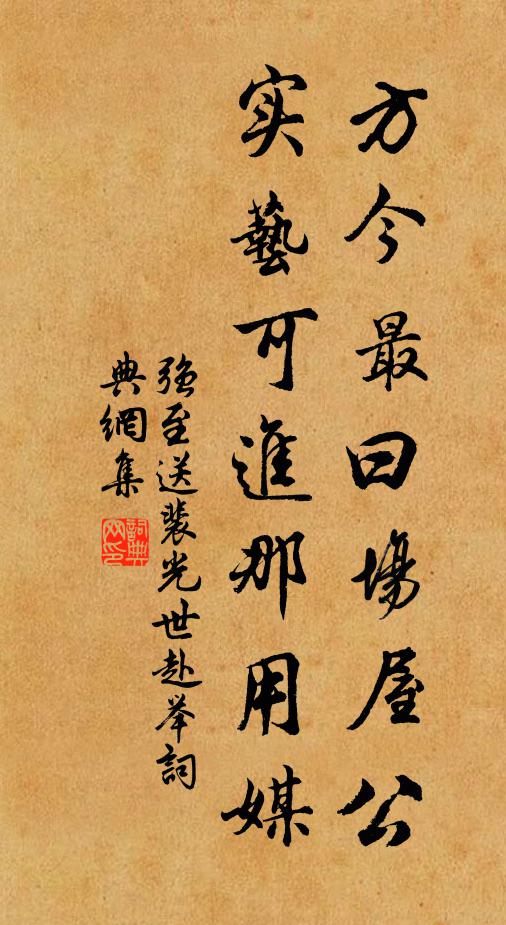 方今最曰場屋公
实藝可進那用媒
强至送裴光世赴举詞
典網集
詞典网印